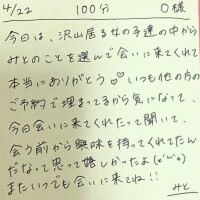 4/22 100分 O様
今日は、沢山居る女の子達の中から
みとのことを選んで会いに来てくれて
本当にありがとう♡♡ いつも他の方の
ご予約で埋まってるから気になって、
今日会いに来てくれたって聞いて、
会う前から興味を持ってくれてたん
だなって思って嬉しかったよ(๑'ᴗ'๑)
またいつでも会いに来てね!!
みと